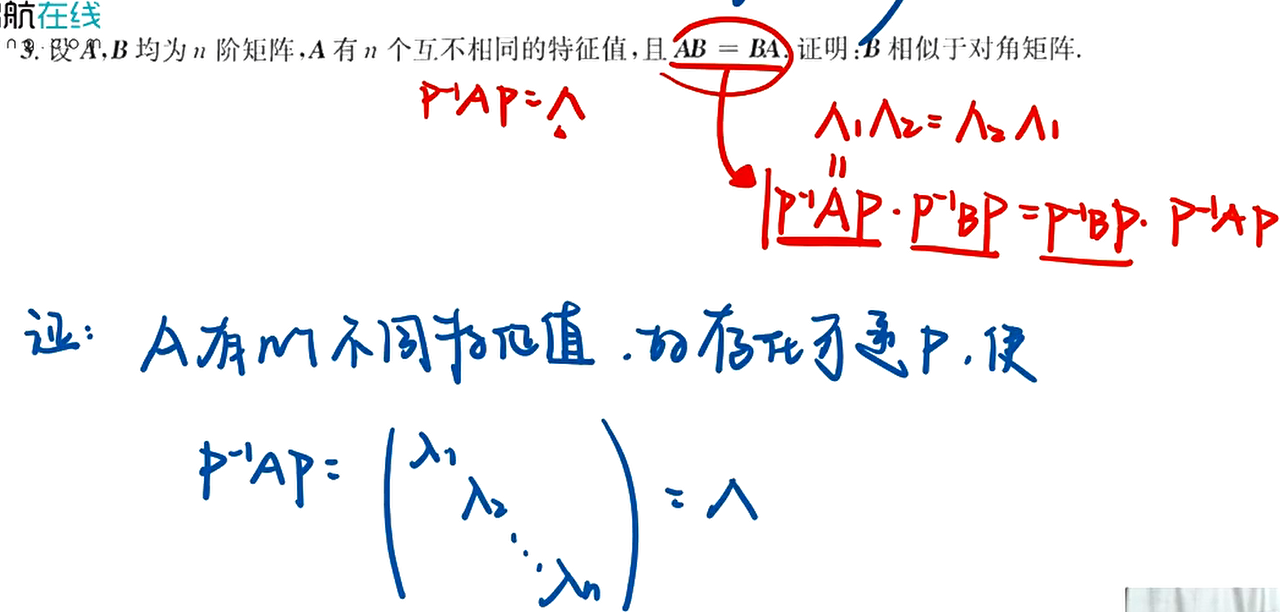 航在线
3. 设 A,B 均为 n 阶矩阵,A 有 n 个互不相同的特征值,且 AB = BA. 证明:B 相似于对角矩阵.
P⁻¹AP=Λ
Λ₁Λ₂=Λ₂Λ₁
=
P⁻¹AP·P⁻¹BP=P⁻¹BP·P⁻¹AP
证: A有n个不同特征值,故存在可逆P,使
P⁻¹AP=
λ₁
λ₂
⋱
λn
=Λ